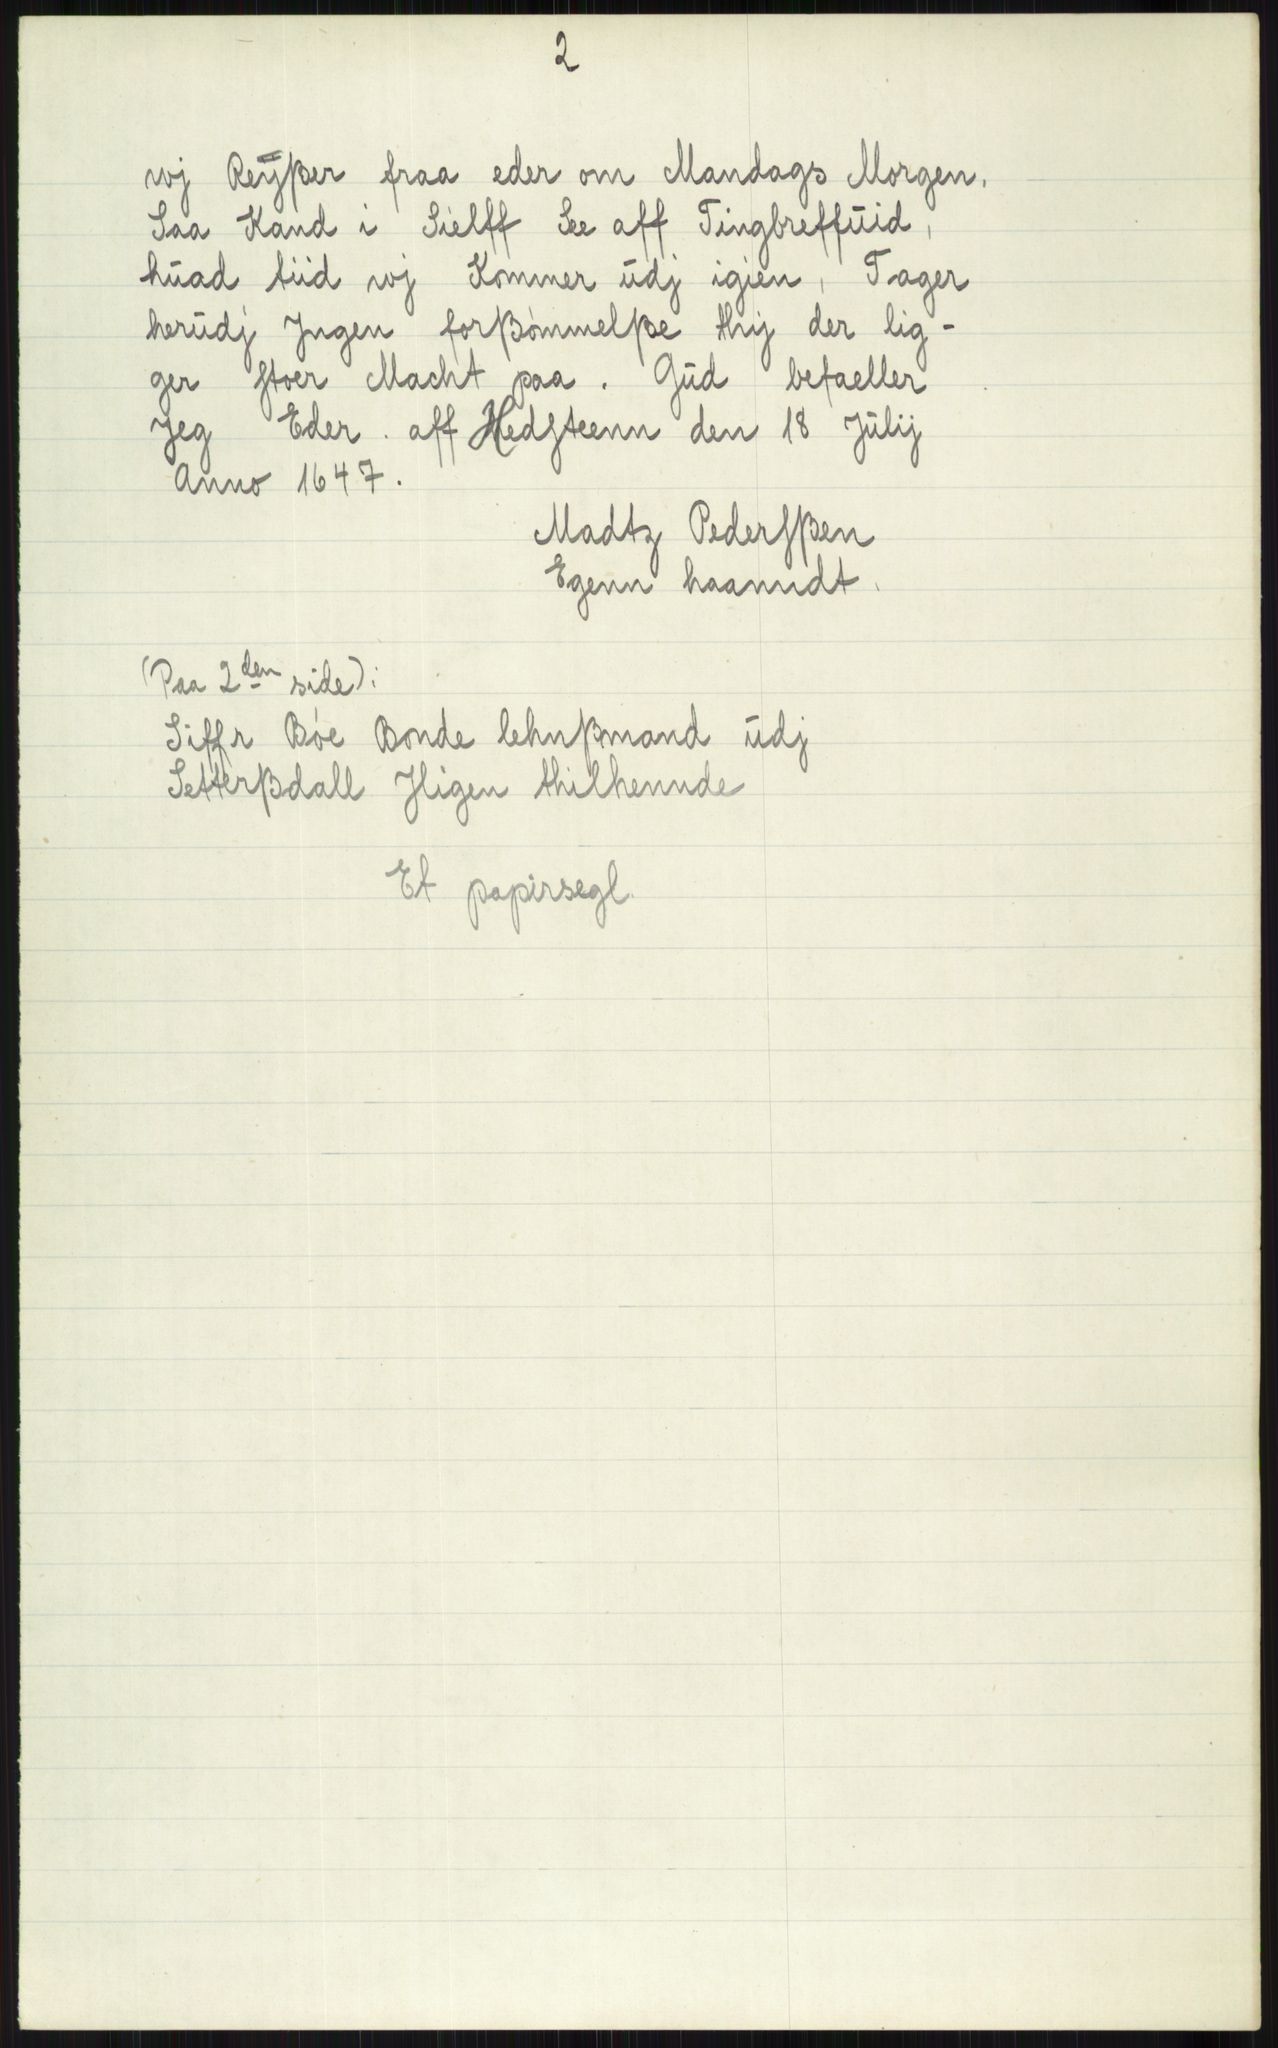 2
wj Reÿßer fraa eder om Mandags Morgen.
Saa Kand i Sielff See aff Tingbreffŭid,
hŭad tiid wj Kommer ŭdj igien, Tager
herŭdj Jngen forßømmelße thij der lig-
ger stoer Macht paa. Gŭd befaeller
Jeg Eder. aff Hedsteenn den 18 Jŭlij
Anno 1647.
Madtz Pedersßen
Egenn haanndt.
(Paa 2den side):
Siffr Bøe Bonde lehnßmand ŭdj
Setterßdall Jligen thilhennde
Et papirsegl.